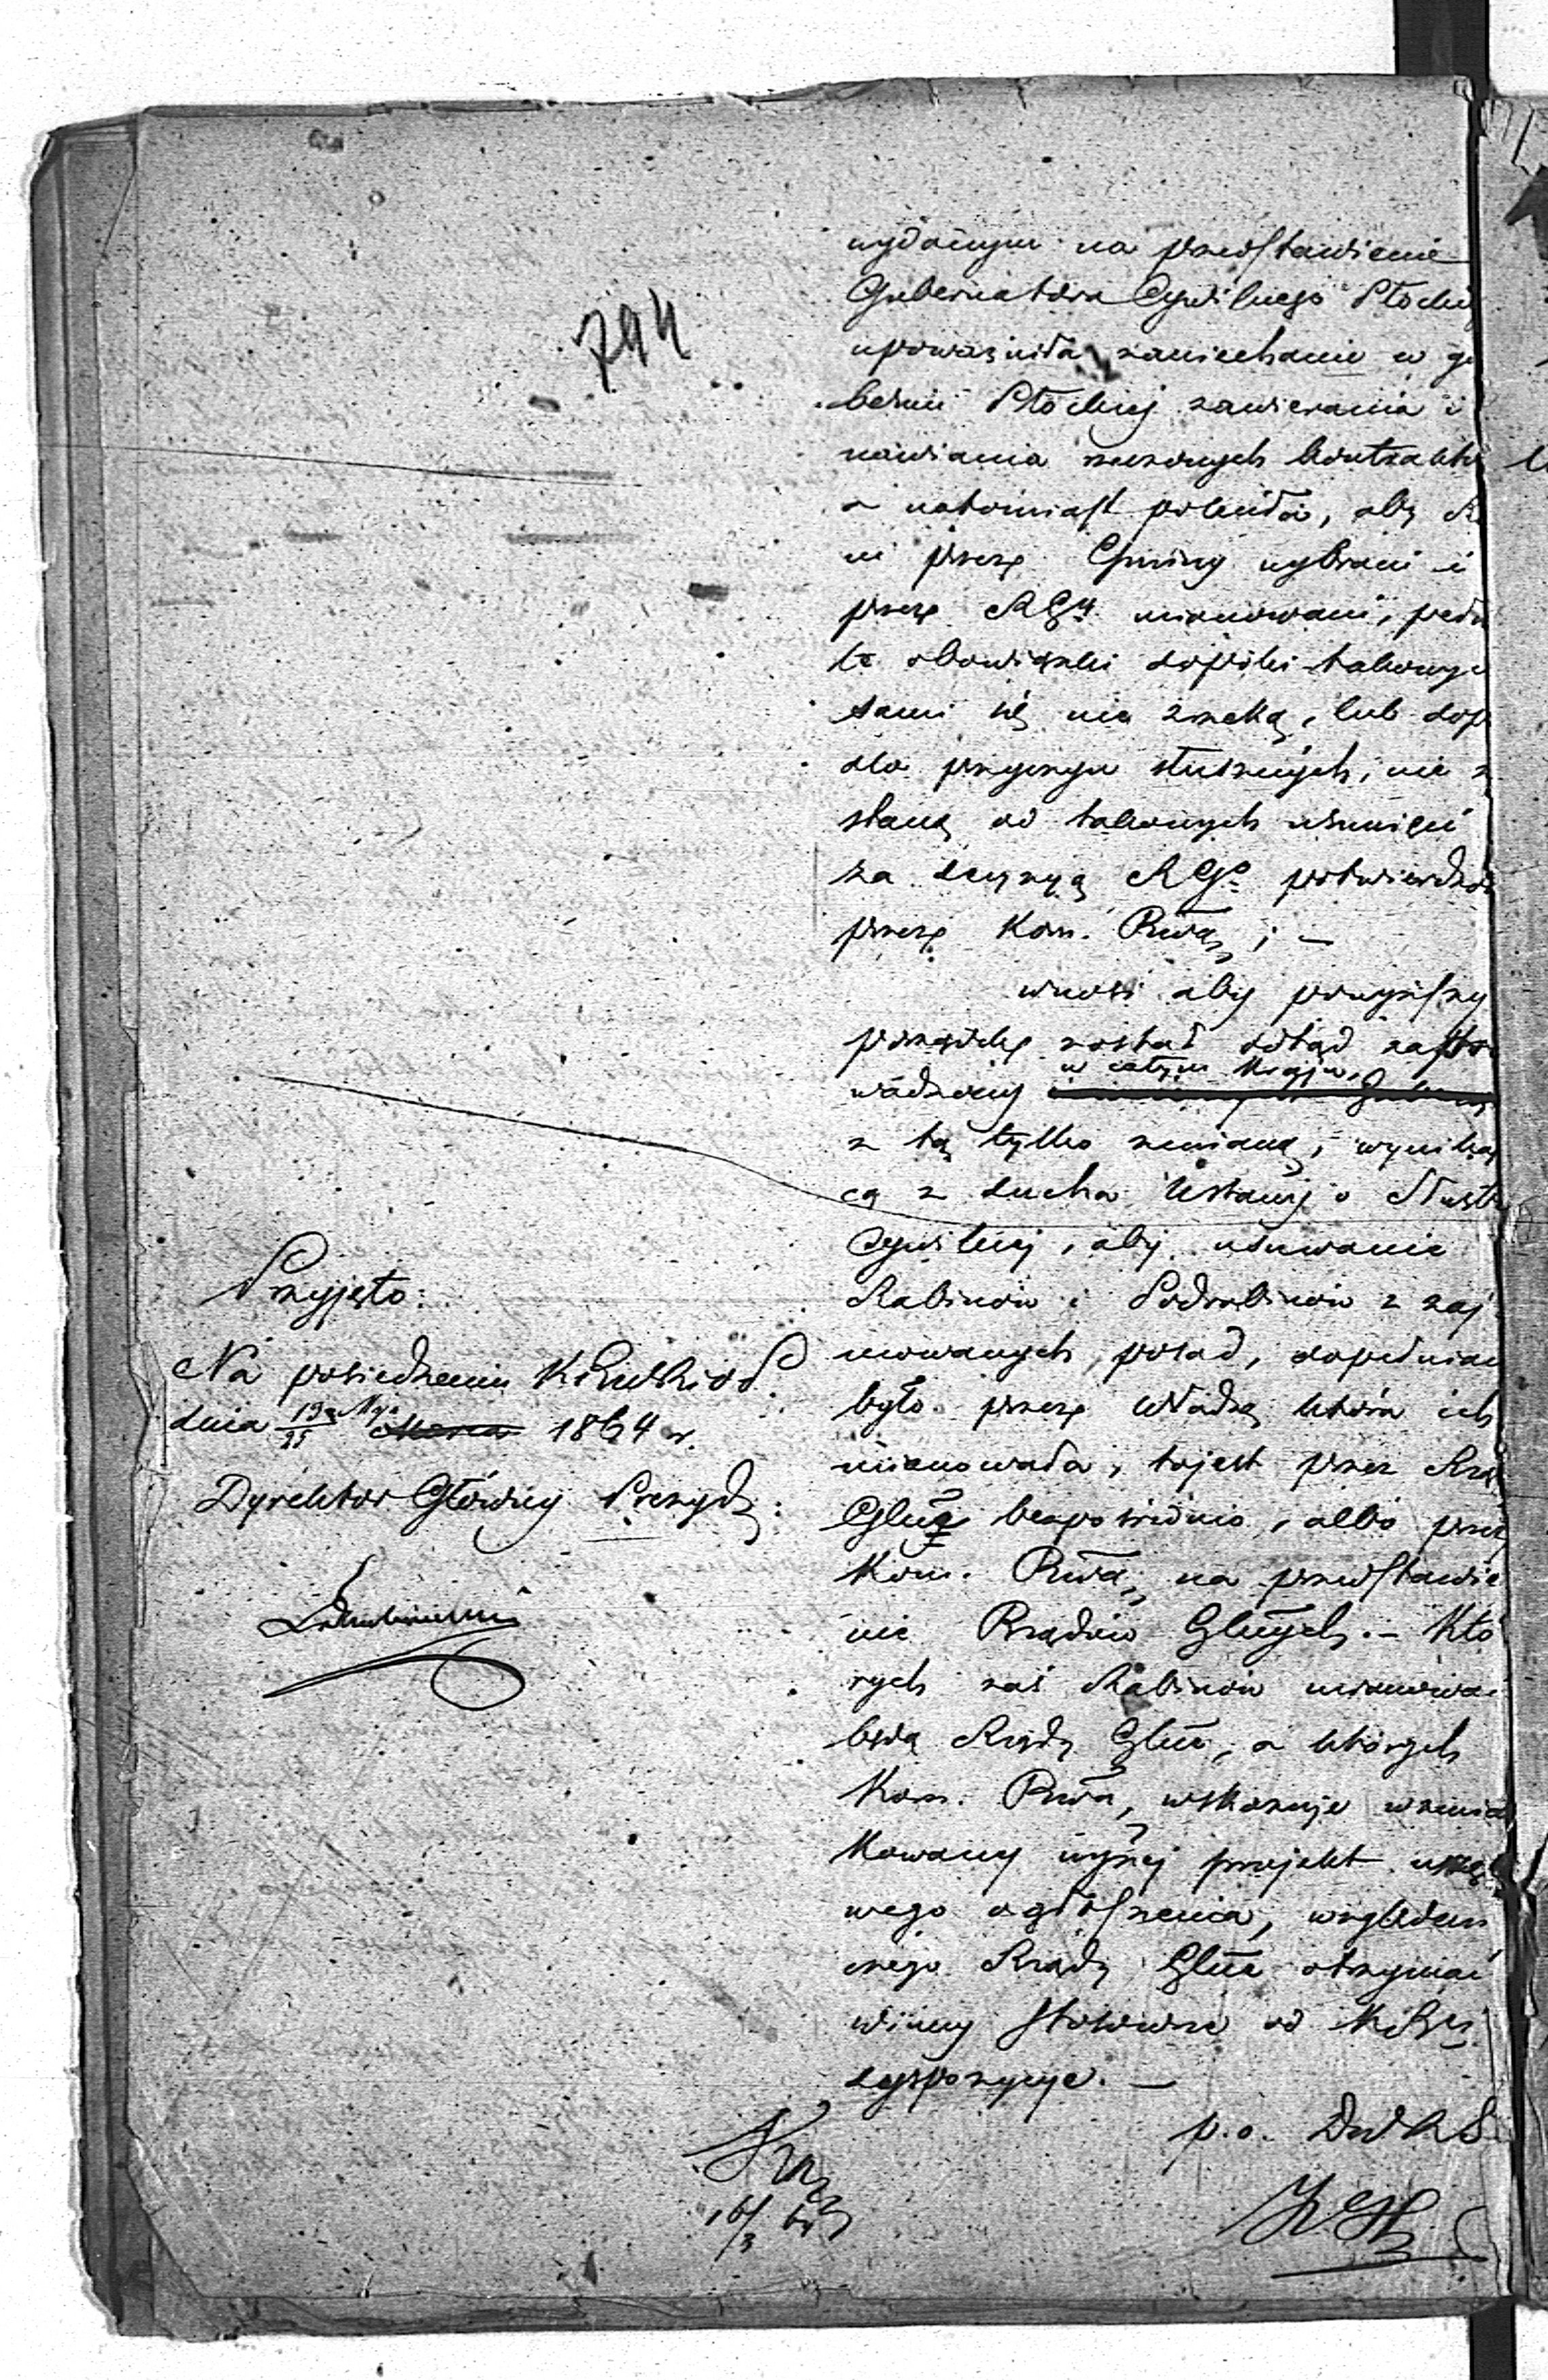 794
wydanym na przedstawienie
Gubernatora Cywilnego Płocki
upoważniła zaniechanie w gu
bernii Płockiej zawierania i
nawiania rzeczonych kontraktó
a natomiast poleciła, aby R
ni przez Gminy wybrani i
przez RGu. mianowani, pełn
te obowiązki dopóki takowyc
sami się nie zrzeką, lub dop
dla przyczyn słusznych, nie z
staną od takowych usunięci
za decyzyą RGo potwierdzon
przez Kom. Rwą; —
wnosi aby powyższy
porządek został odtąd zapro
wadzony w całym Kraju,
z tą tylko zmianą, wynikaj
cą z ducha Ustawy o Służb
Cywilnej, aby usuwanie
Rabinów i Podrabinów z zaj
mowanych posad, dopełnian
było przez Władzę która ich
mianowała, tojest przez Rzą
Glny bezpośrednio, albo przez
Kom. Rwą, na przedstawie
nie Rządów Glnych. — Któ
rych zaś Rabinów mianować
będą Rządy Glne, a których
Kom. Rwa, wskazuje wzmia
kowany wyżej projekt urzę
wego ogłoszenia, względem
czego Rządy Glne otrzymać
winny stosowne od KRS
dyspozycye. —
p.o. DWAS
Przyjęto:
Na posiedzeniu
dnia 13/25 Maja 1864 r.
Dyrektor Główny Prezyd:
16/3 64